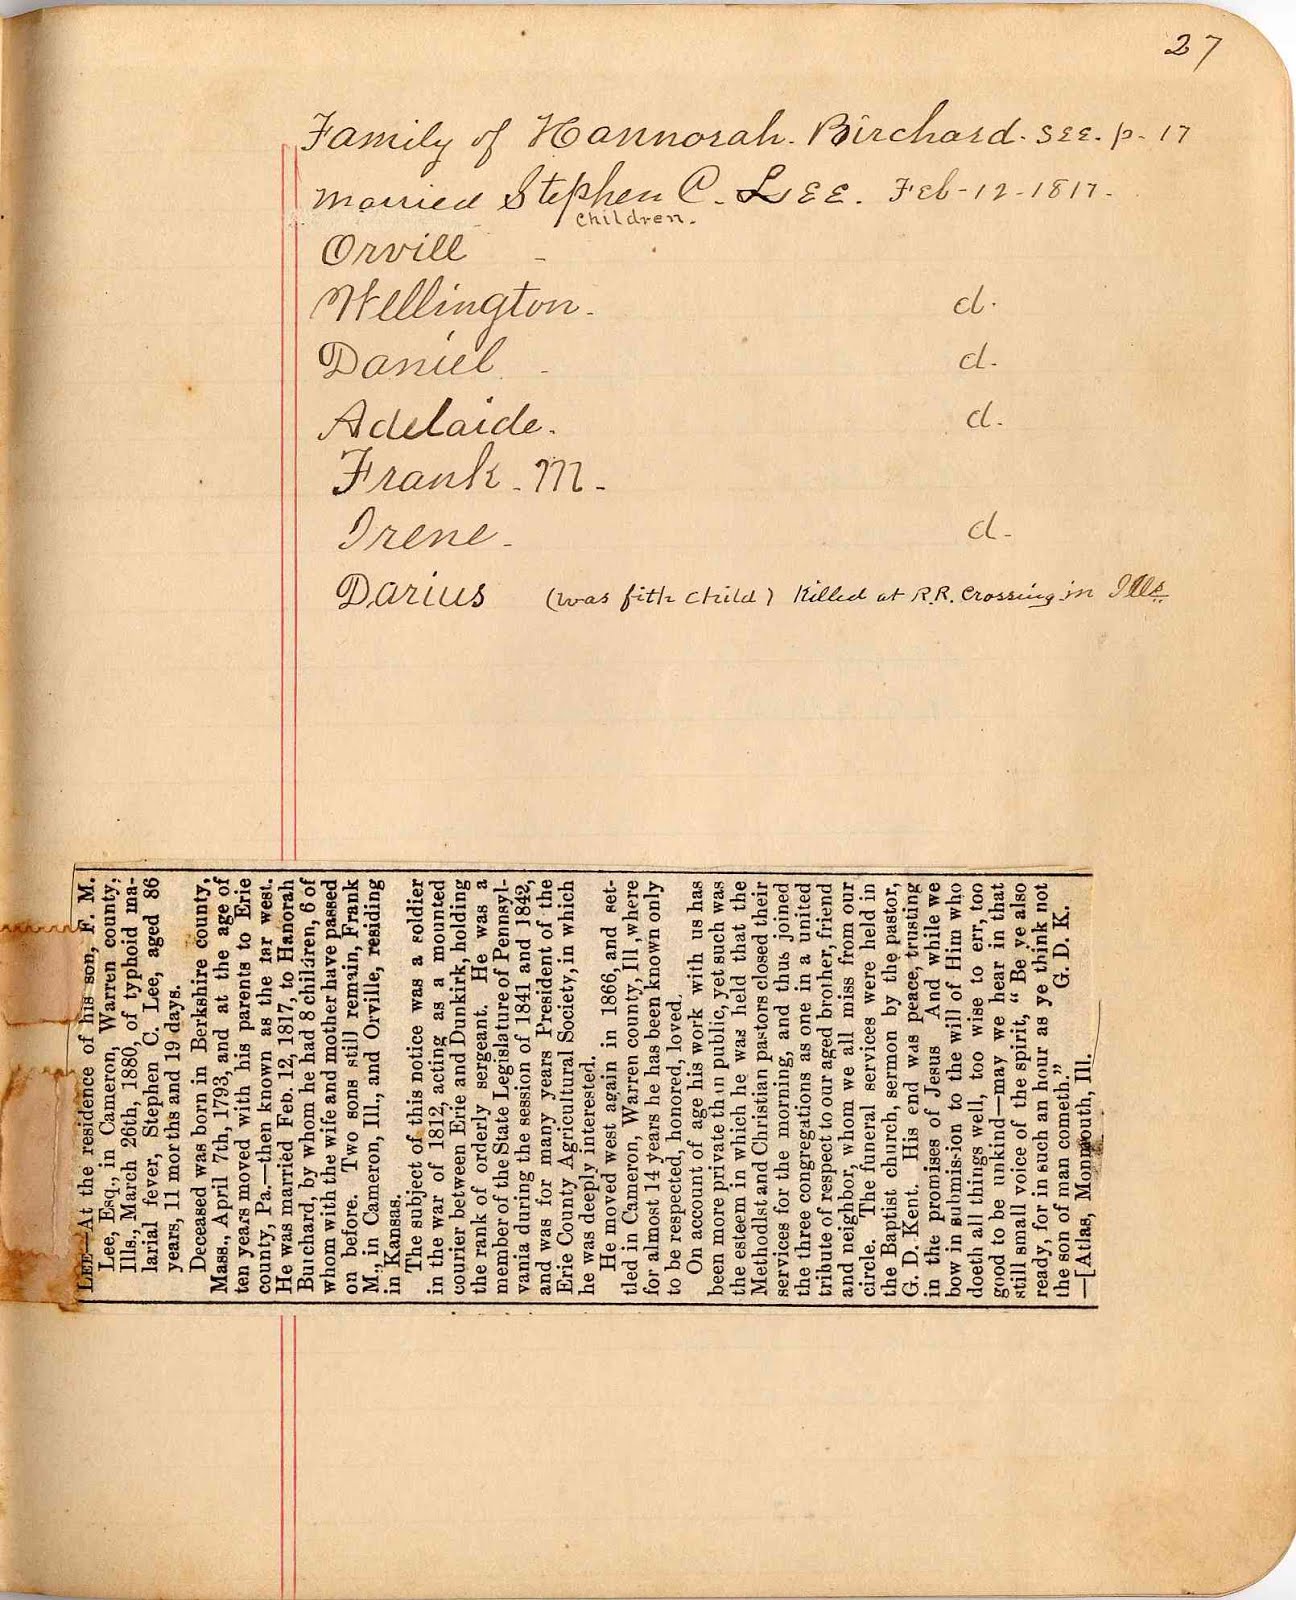 27
Family of Hannorah. Birchard. SEE. p. 17
married Stephen C. LEE. Feb-12-1817.
Children.
Orvill -
Wellington. d.
Daniel - d.
Adelaide. d.
Frank. M.
Irene. d.
Darius (was fith child) Killed at R.R. Crossing in Ills
LEE—At the residence of his son, F. M.
Lee, Esq., in Cameron, Warren county,
Ills., March 26th, 1880, of typhoid ma-
larial fever, Stephen C. Lee, aged 86
years, 11 months and 19 days.
Deceased was born in Berkshire county,
Mass., April 7th, 1793, and at the age of
ten years moved with his parents to Erie
county, Pa.—then known as the far west.
He was married Feb. 12, 1817, to Hanorah
Buchard, by whom he had 8 children, 6 of
whom with the wife and mother have passed
on before. Two sons still remain, Frank
M., in Cameron, Ill., and Orville, residing
in Kansas.
The subject of this notice was a soldier
in the war of 1812, acting as a mounted
courier between Erie and Dunkirk, holding
the rank of orderly sergeant. He was a
member of the State Legislature of Pennsyl-
vania during the session of 1841 and 1842,
and was for many years President of the
Erie County Agricultural Society, in which
he was deeply interested.
He moved west again in 1866, and set-
tled in Cameron, Warren county, Ill, where
for almost 14 years he has been known only
to be respected, honored, loved.
On account of age his work with us has
been more private than public, yet such was
the esteem in which he was held that the
Methodist and Christian pastors closed their
services for the morning, and thus joined
the three congregations as one in a united
tribute of respect to our aged brother, friend
and neighbor, whom we all miss from our
circle. The funeral services were held in
the Baptist church, sermon by the pastor,
G. D. Kent. His end was peace, trusting
in the promises of Jesus And while we
bow in submission to the will of Him who
doeth all things well, too wise to err, too
good to be unkind—may we hear in that
still small voice of the spirit, "Be ye also
ready, for in such an hour as ye think not
the son of man cometh." G. D. K.
—[Atlas, Monmouth, Ill.